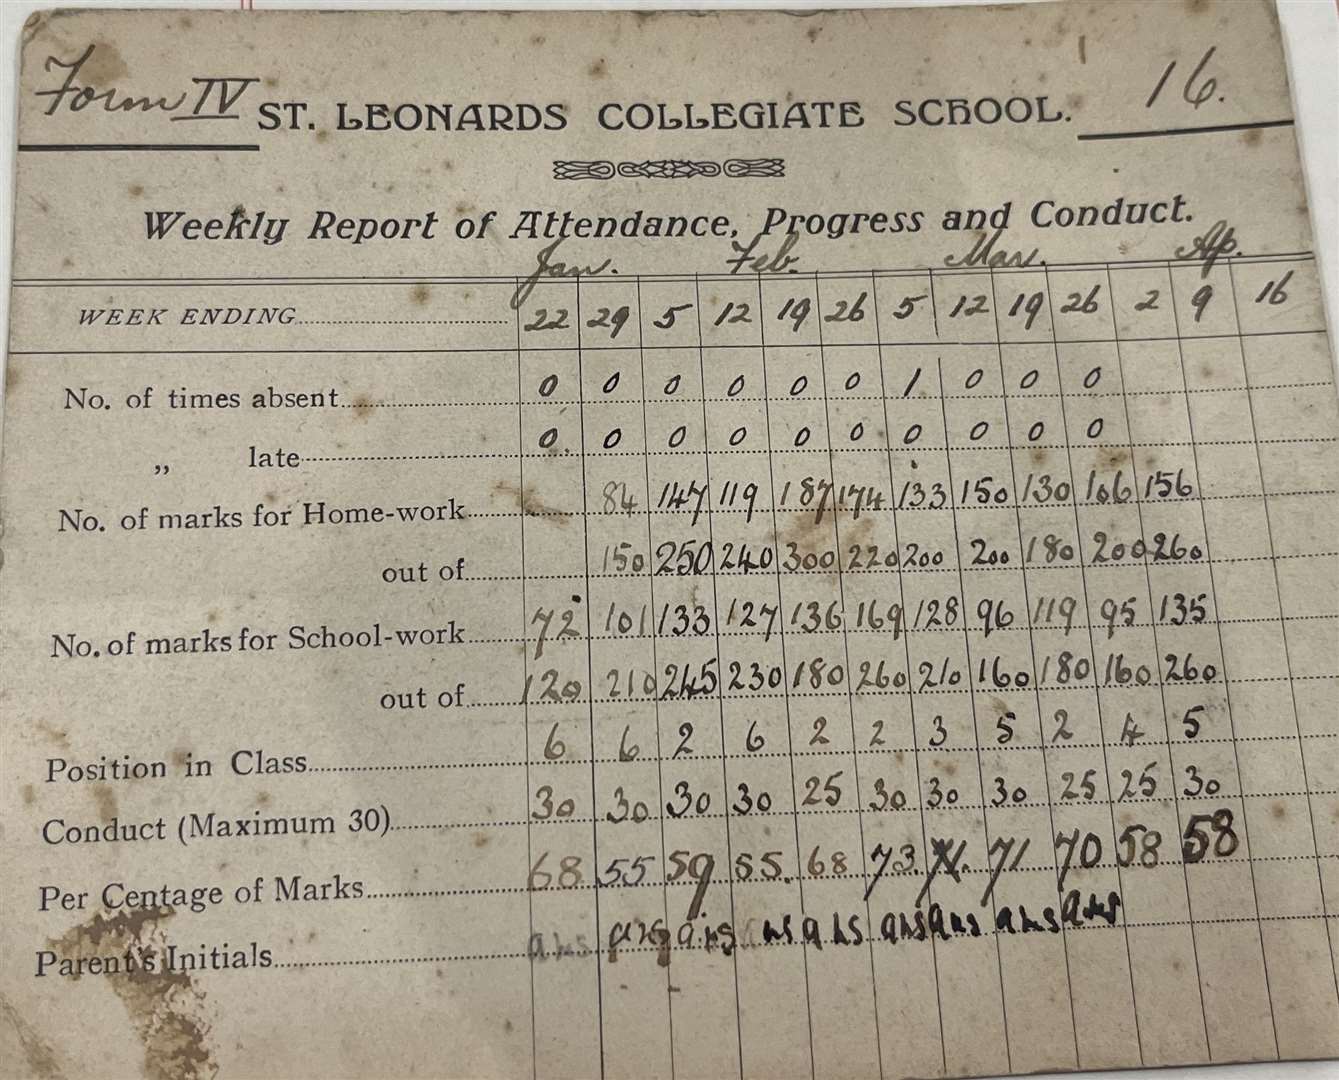 Form IV ST. LEONARDS COLLEGIATE SCHOOL. 16.
Weekly Report of Attendance, Progress and Conduct.
Jan. Feb. Mar. Ap.
WEEK ENDING 22 29 5 12 19 26 5 12 19 26 2 9 16
No. of times absent 0 0 0 0 0 0 1 0 0 0
„ late 0 0 0 0 0 0 0 0 0 0
No. of marks for Home-work 84 147 119 187 174 133 150 130 106 156
out of 150 250 240 300 220 200 200 180 200 260
No. of marks for School-work 72 101 133 127 136 169 128 96 119 95 135
out of 120 210 245 230 180 260 210 160 180 160 260
Position in Class 6 6 2 6 2 2 3 5 2 4 5
Conduct (Maximum 30) 30 30 30 30 25 30 30 30 25 25 30
Per Centage of Marks 68 55 59 55. 68 73. 71. 71 70 58 58
Parent's Initials